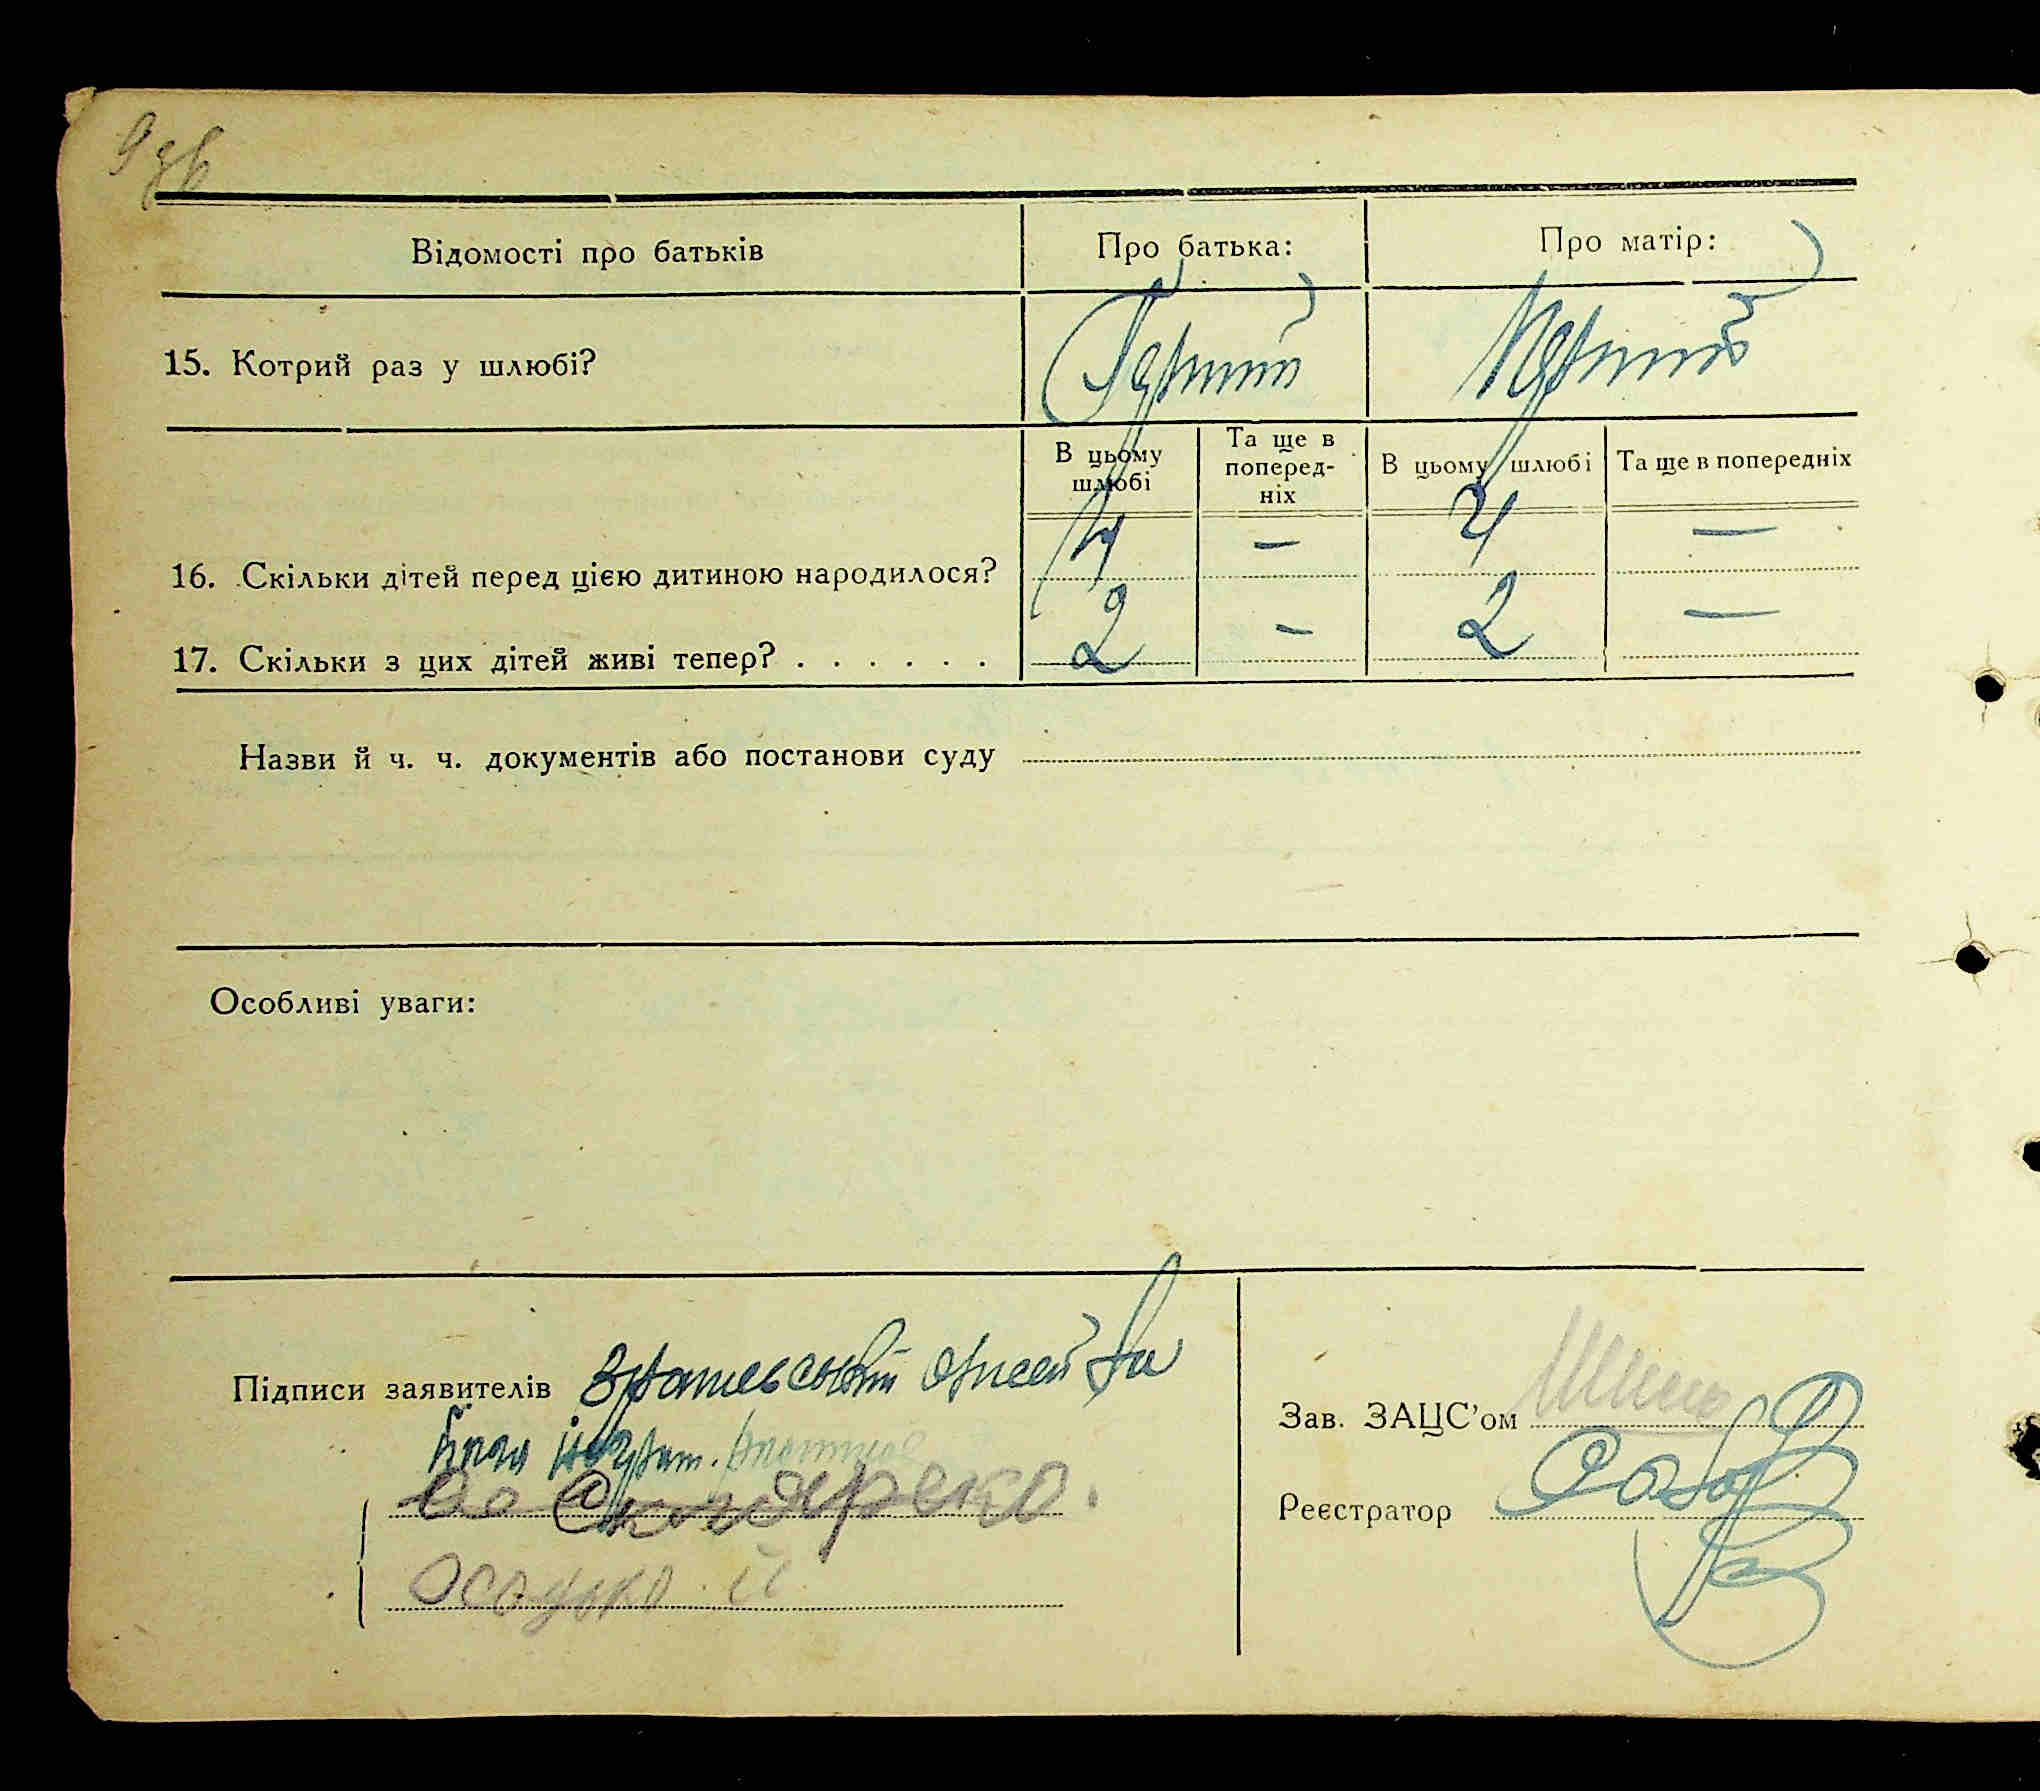 9зв
Відомості про батьків
Про батька:
Про матір:
15. Котрий раз у шлюбі?
Первий
Первий
В цьому шлюбі
Та ще в поперед-
ніх
В цьому шлюбі
Та ще в попередніх
16. Скільки дітей перед цією дитиною народилося?
4 — 4 —
17. Скільки з цих дітей живі тепер? . . . . . .
2 — 2 —
Назви й ч. ч. документів або постанови суду
Особливі уваги:
Підписи заявителів
Осадчко
Зав. ЗАЦС'ом
Реєстратор